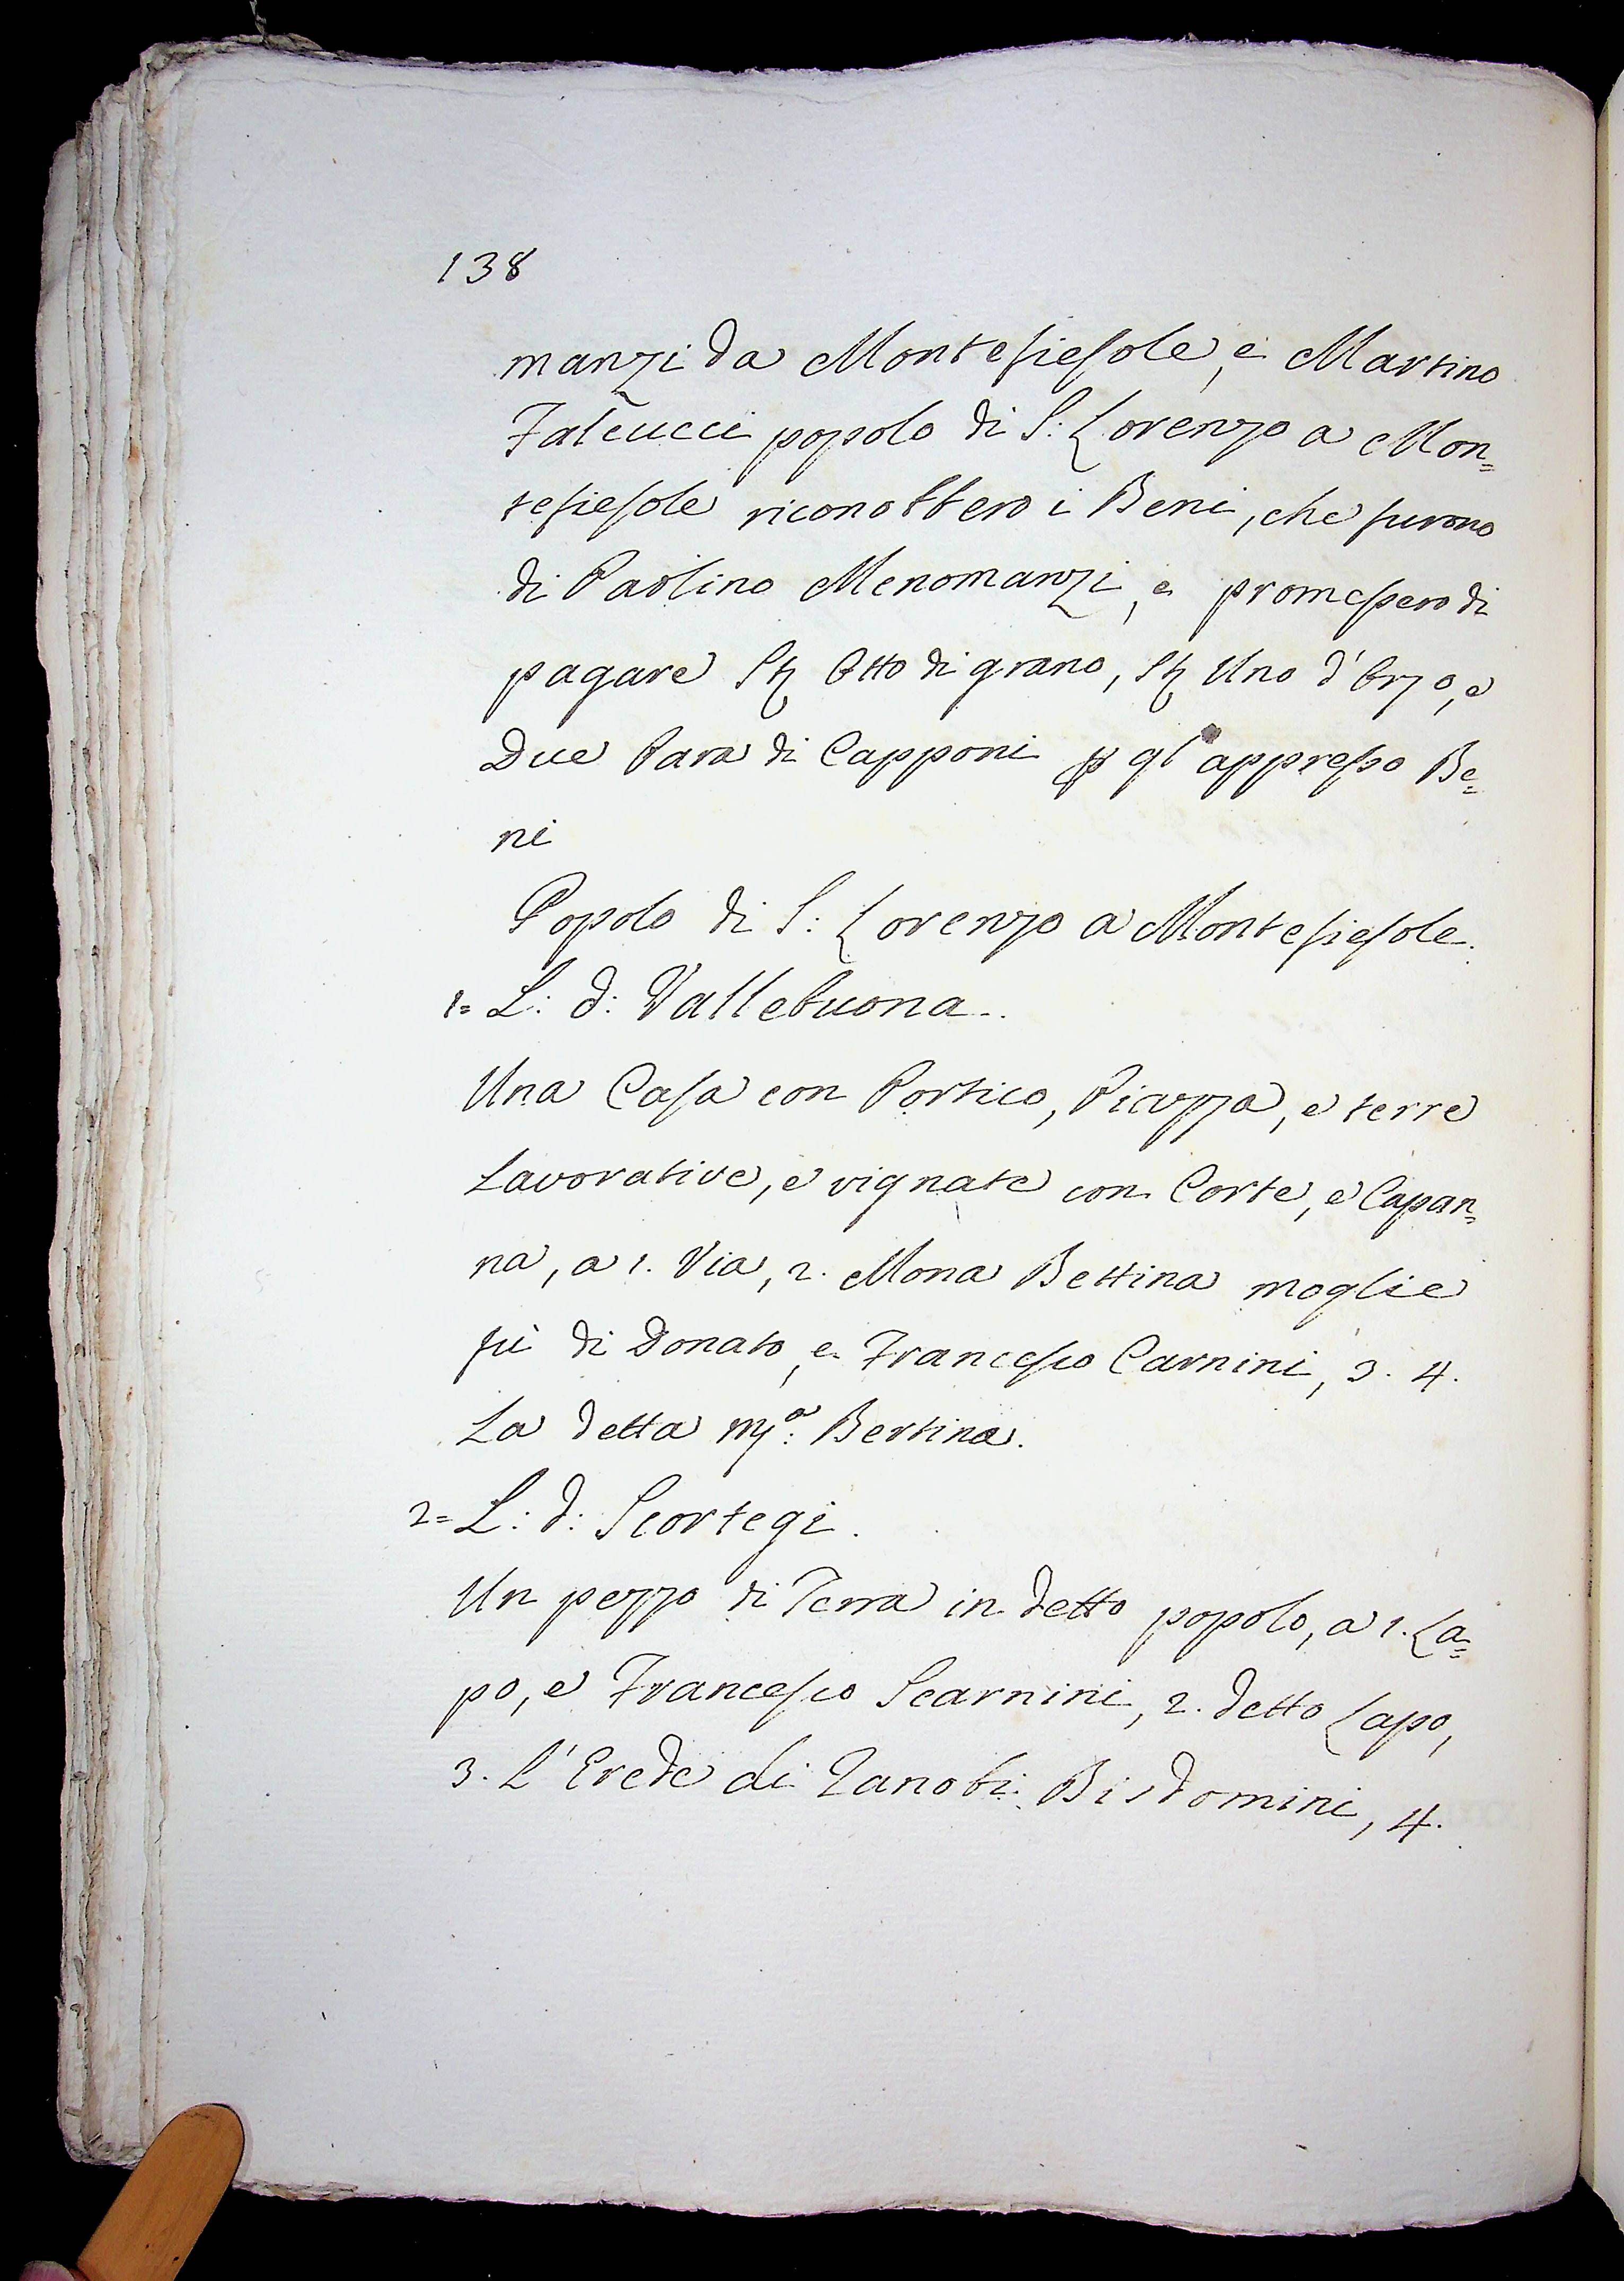 138
manzi da Montefiesole, e Martino
Falcucci popolo di S: Lorenzo a Mon=
tefiesole riconobbero i Beni, che furono
di Paolino Menomanzi, e promessero di
pagare Stа Otto di grano, Sta Uno d'Orzo, e
Due Para di Capponi p gl' appresso Be=
ni
Popolo di S: Lorenzo a Montefiesole.
1= L: d: Vallebuona..
Una Casa con Portico, Piazza, e terre
Lavorative, e vignate con Corte, e Capan=
na, a 1. Via, 2. Mona Bettina moglie
fù di Donato, e Francesco Carnini, 3. 4.
La detta Mª: Bertina.
2= L: d: Scortegi.
Un pezzo di Terra in detto popolo, a 1. La=
po, e Francesco Scarnini, 2. detto Lapo,
3. L'Erede di Zanobi Bisdomini, 4.